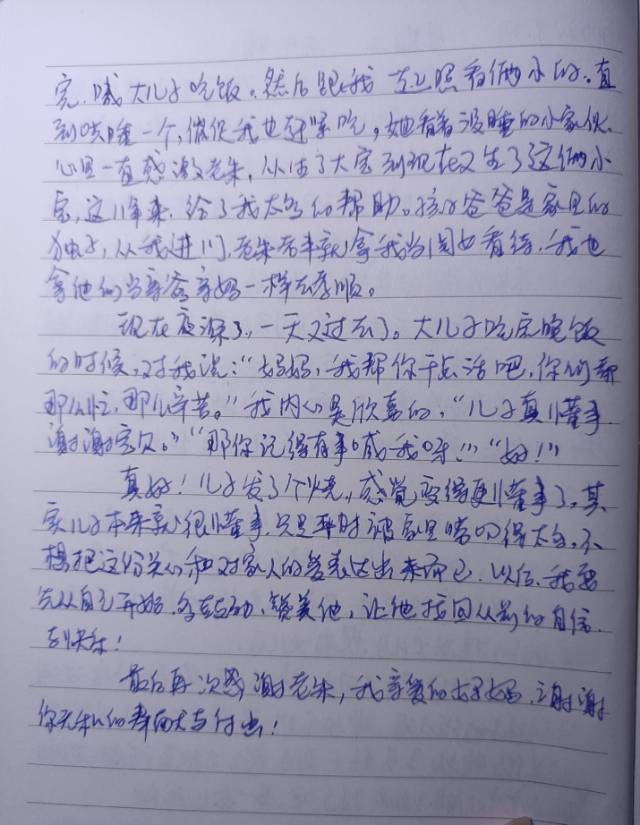 完,喊大儿子吃饭。然后跟我一起照看俩小的,直
到哄睡一个,催促我也赶紧吃,她看着没睡的小家伙。
心里一直感激老朱,从生了大宝到现在又生了这俩小
宝,这几年来,给了我太多的帮助。孩子爸爸是家里的
独子,从我进门,老朱本来就拿我当闺女看待,我也
拿他们当亲爸亲妈一样去孝顺。
现在夜深了,一天又过去了。大儿子吃完晚饭
的时候,对我说:“妈妈,我帮你干点活吧,你们都
那么忙,那么辛苦。”我内心是欣喜的,“儿子真懂事,
谢谢宝贝。”“那你记得有事喊我呀!”“好!”
真好!儿子发了个烧,感觉变得更懂事了。其
实儿子本来就很懂事,只是平时被家里唠叨得太多,不
想把这份关心和对家人的爱表达出来而已。以后,我要
先从自己开始,多鼓励、赞美他,让他找回从前的自信
与快乐!
最后再次感谢老朱,我亲爱的婆妈,谢谢
你无私的奉献与付出!